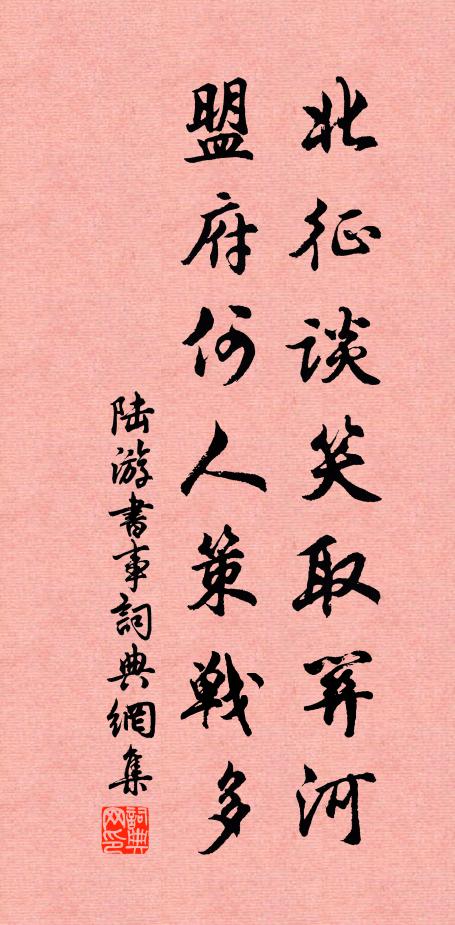 北征谈笑取关河
盟府何人策战多
陆游书事詞典網集
詞典网印